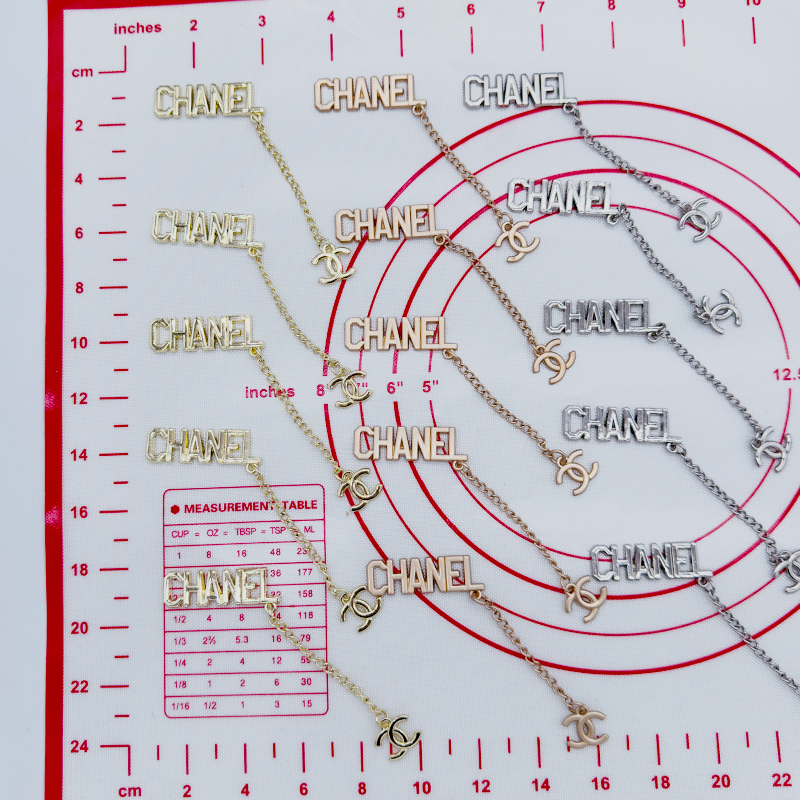 inches 2 3 4 5 6 7 8 9 10
cm
CHANEL CHANEL CHANEL
2
4
CHANEL CHANEL CHANEL
6
8
CHANEL CHANEL CHANEL
10
inches 8" 7" 6" 5" 12.5
12
CHANEL CHANEL CHANEL
14
16
MEASUREMENT TABLE
CUP = OZ = TBSP = TSP = ML
1 8 16 48
18
36 177
CHANEL CHANEL CHANEL
158
1/2 4 8 118
20
1/3 2⅔ 5.3 16 79
1/4 2 4 12
22
1/8 1 2 6 30
1/16 1/2 1 3 15
24
cm 2 4 6 8 10 12 14 16 18 20 22